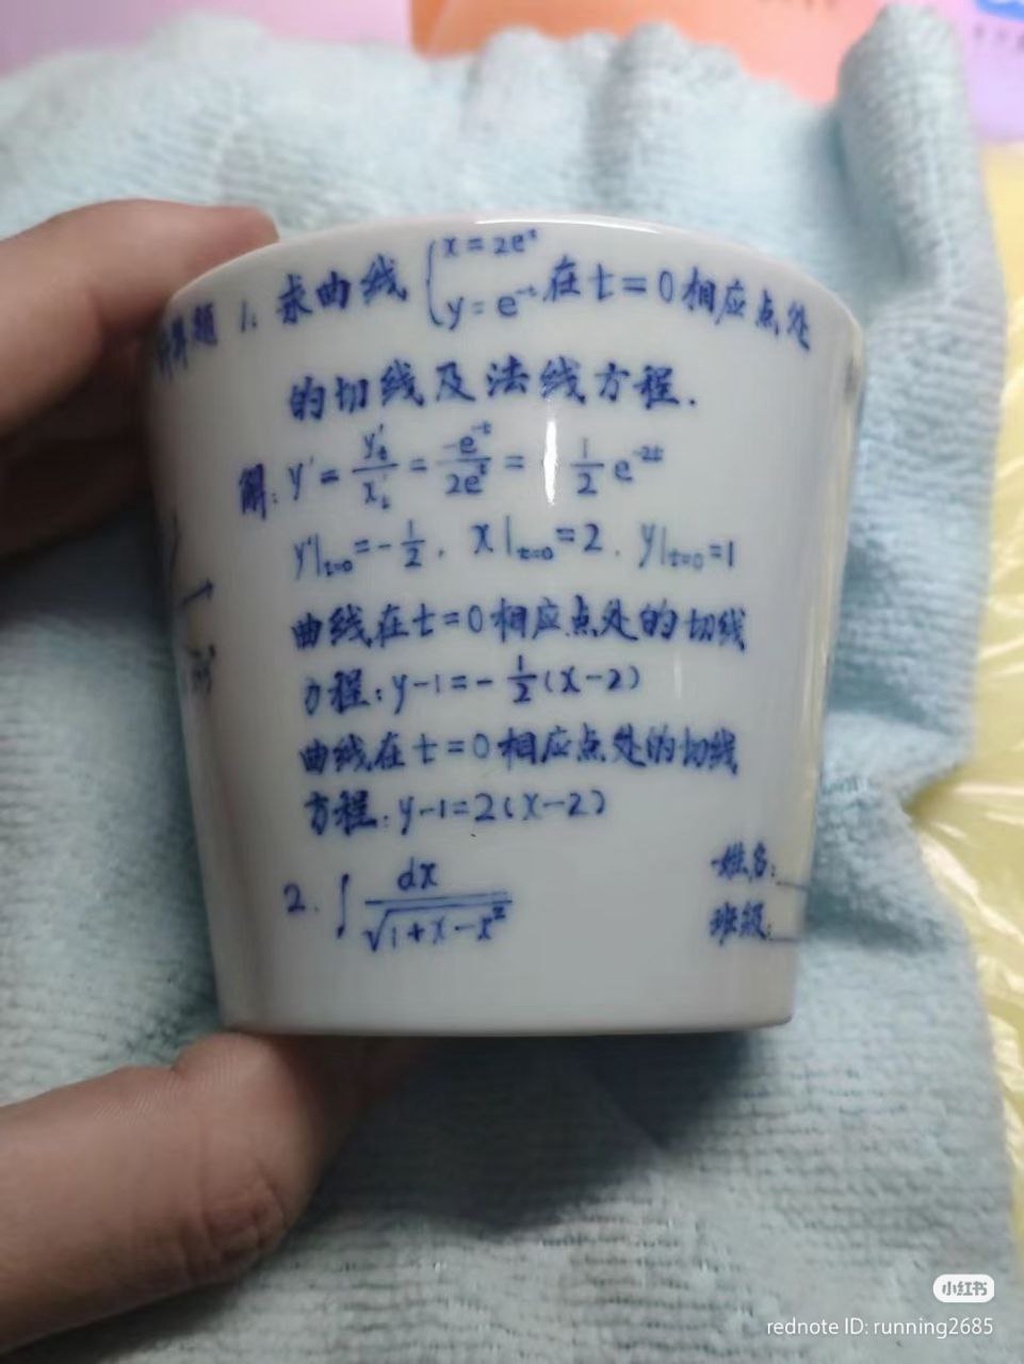 计算题 1. 求曲线 { x = 2eᵗ
y = e⁻ᵗ 在 t = 0 相应点处
的切线及法线方程.
解: y' = y'ₜ/x'ₜ = -e⁻ᵗ/2eᵗ = 1/2 e⁻²ᵗ
y'|ₜ₌₀ = -1/2 . x|ₜ₌₀ = 2 . y|ₜ₌₀ = 1
曲线在 t = 0 相应点处的切线
方程: y-1 = -1/2 (x-2)
曲线在 t = 0 相应点处的切线
方程: y-1 = 2(x-2)
2. ∫ dx/√(1+x-x²)
姓名:
班级:
小红书
rednote ID: running2685